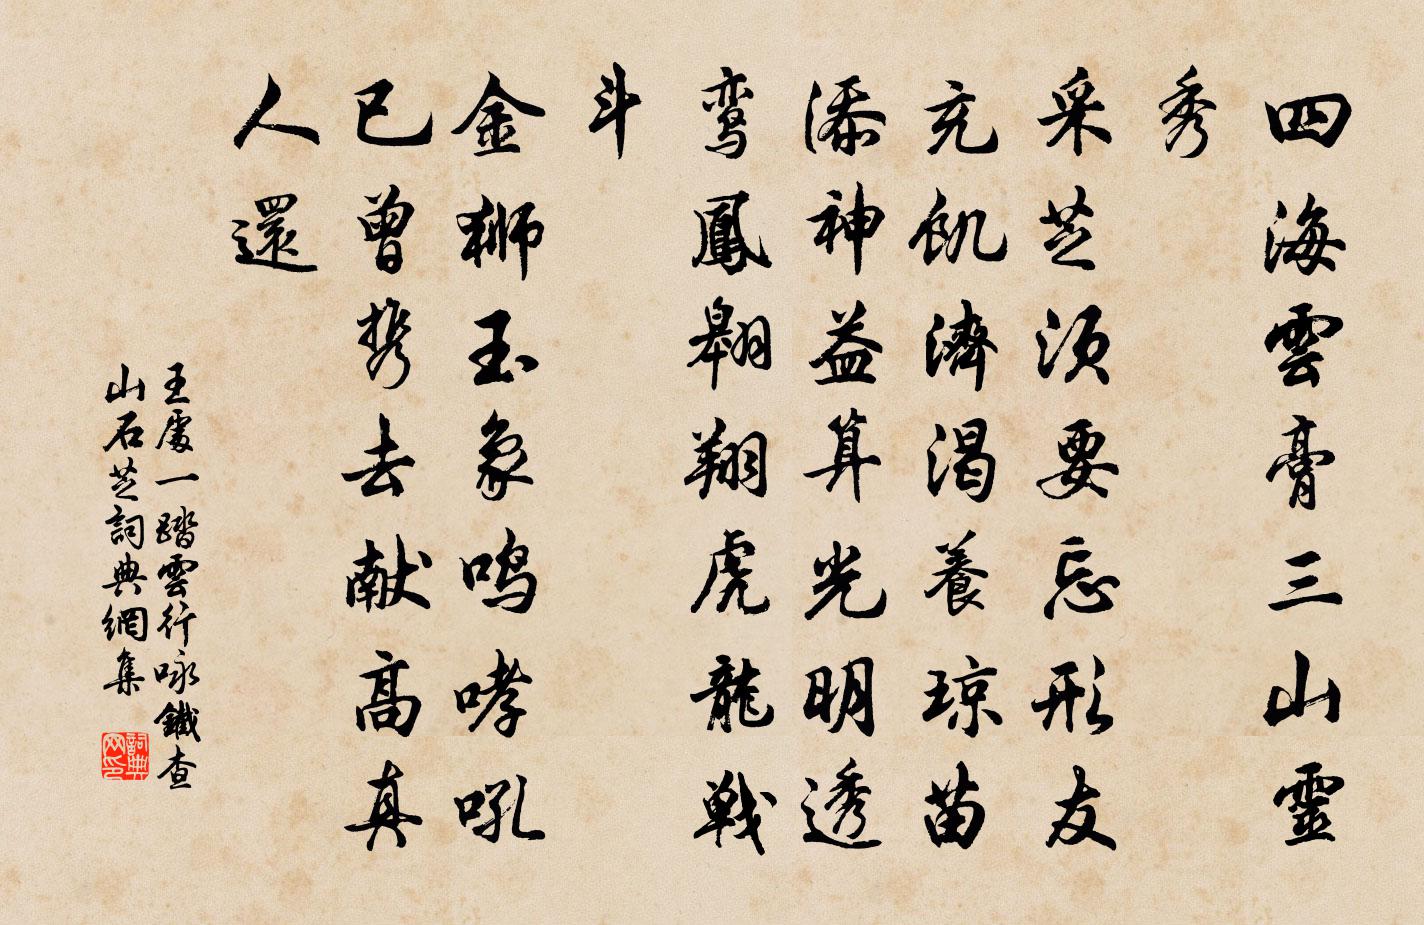 四海雲膏三山靈
秀
采芝須要忘形友
充飢濟渴養琼苗
添神益算光明透
鸾鳳翱翔虎龍戦
斗
金狮玉象鸣哮吼
已曾携去献高真
人還
王處一踏雲行咏鐵查
山石芝詞典網集
詞典
网印